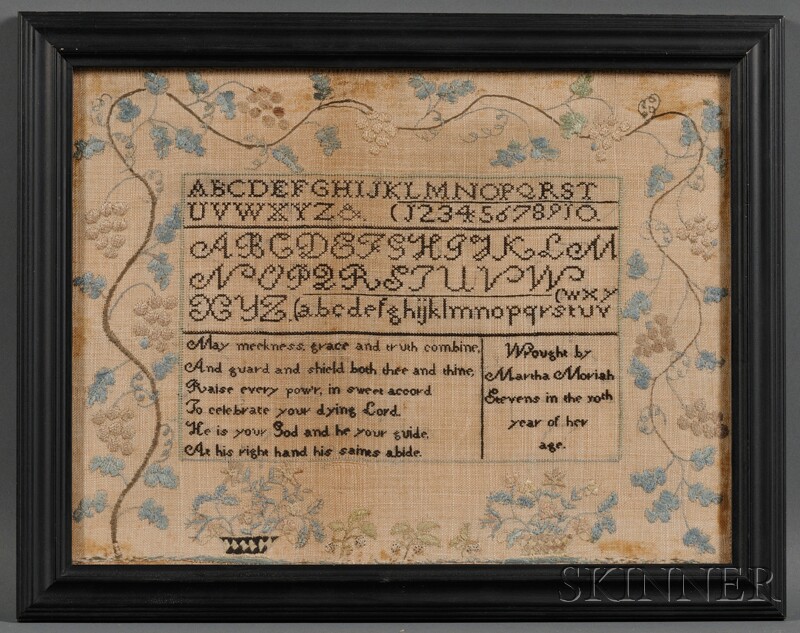 ABCDEFGHIJKLMNOPQRST
UVWXYZ&. (12345678910.
ABCDEFGHIJKLM
NOPQRSTUVW
XYZ. (abcdefghijklmnopqrstuv
(wxy
May meekness, grace and truth combine,
And guard and shield both thee and thine,
Raise every pow'r, in sweet accord
To celebrate your dying Lord.
He is your God and he your guide,
At his right hand his saints abide.
Wrought by
Martha Moriah
Stevens in the 10th
year of her
age.
SKINNER